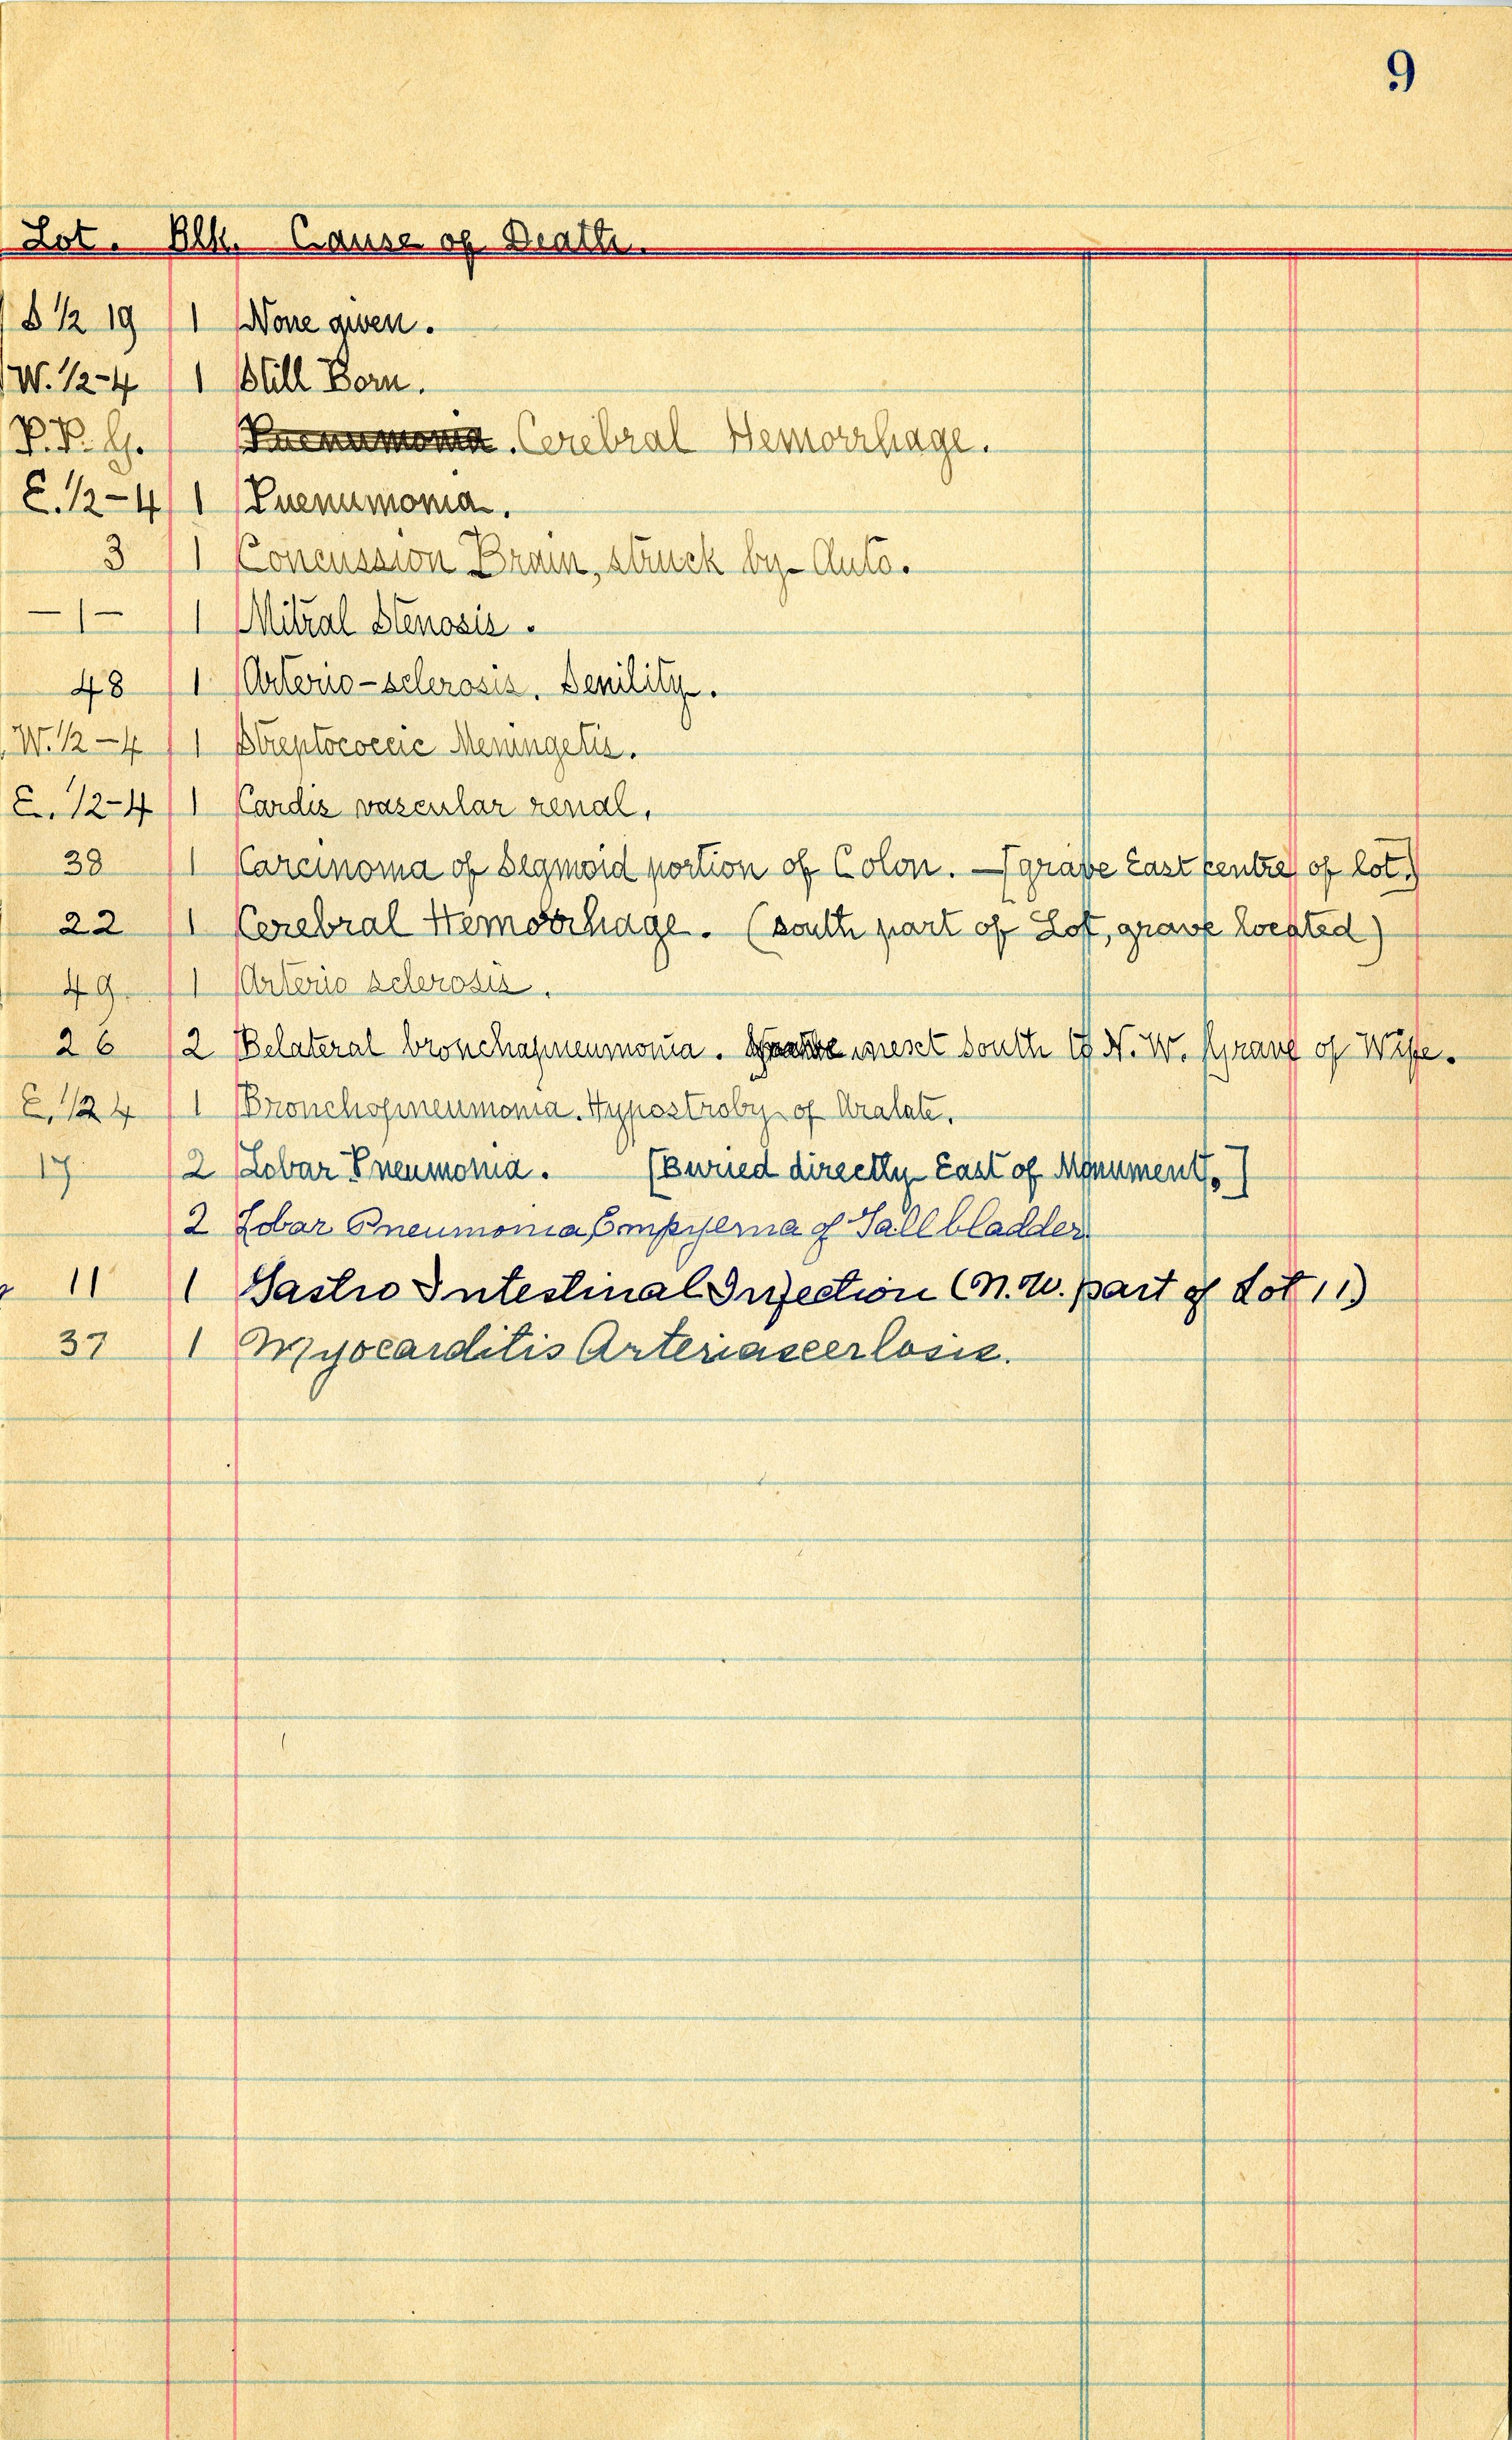 9
Lot. Blk. Cause of Death.
S 1/2 19 1 None given.
W. 1/2-4 1 Still Born.
P.P. G. Puenumonia. Cerebral Hemorrhage.
E. 1/2-4 1 Puenumonia.
3 1 Concussion Brain, struck by Auto.
-1- 1 Mitral Stenosis.
48 1 Arterio-sclerosis. Senility.
W. 1/2-4 1 Streptococcic Meningetis.
E. 1/2-4 1 Cardis vascular renal.
38 1 Carcinoma of Segmoid portion of Colon. — (grave East centre of lot.)
22 1 Cerebral Hemorrhage. (south part of Lot, grave located)
49 1 Arterio sclerosis.
26 2 Belateral bronchapneumonia. South of N. W. Grave of Wife.
E. 1/2 4 1 Bronchopneumonia. Hypostroby of
17 2 Lobar Pneumonia. (Buried directly East of Monument.)
2 Lobar Pneumonia, Empyema of Gall bladder
11 1 Gastro Intestinal Infection (N.W. part of Lot 11)
37 1 Myocarditis Arteriascerlosis.